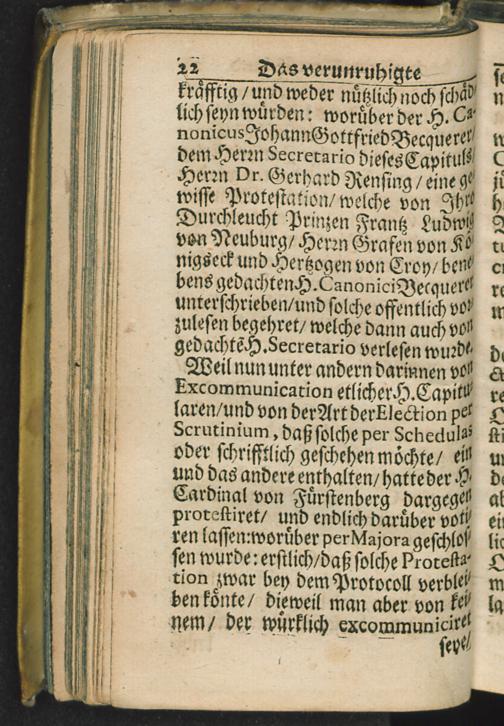 22 Das verunruhigte
kräfftig / und weder nützlich noch schäd-
lich seyn würden: worüber der H. Ca-
nonicus Johann Gottfried Becquerer/
dem Herrn Secretario dieses Capituls/
Herrn Dr. Gerhard Rensing / eine ge-
wisse Protestation/ welche von Ihro
Durchleucht Prinzen Frantz Ludwig
von Neuburg/ Herrn Grafen von Kö-
nigseck und Hertzogen von Croy/ bene-
bens gedachten H. Canonici Becquerer
unterschrieben/und solche offentlich vor-
zulesen begehret/ welche dann auch von
gedachtē H. Secretario verlesen wurde.
Weil nun unter andern darinnen von
Excommunication etlicher H. Capitu-
laren/und von der Art der Election per
Scrutinium, daß solche per Schedulas
oder schrifftlich geschehen möchte/ ein
und das andere enthalten/ hatte der H.
Cardinal von Fürstenberg dargegen
protestiret/ und endlich darüber voti-
ren lassen: worüber per Majora geschlos-
sen wurde: erstlich/daß solche Protesta-
tion zwar bey dem Protocoll verblei-
ben könte/ dieweil man aber von kei-
nem/ der würklich excommuniciret
seye/